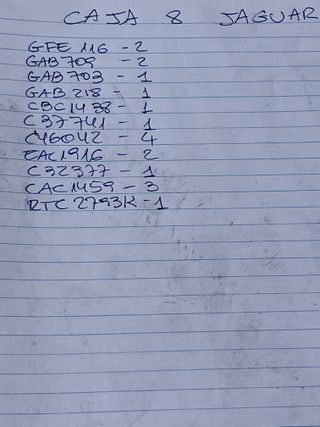 CAJA 8 JAGUAR
GFE 116 - 2
GAB 709 - 2
GAB 703 - 1
GAB 218 - 1
CBC1438 - 1
C37741 - 1
C46042 - 4
EAC1916 - 2
C32377 - 1
CAC1459 - 3
RTC 2793K - 1